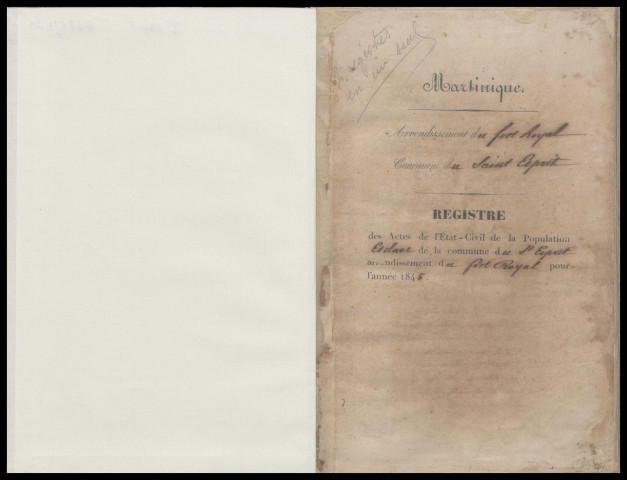 registres
en un seul
Martinique.
Arrondissement du fort Royal
Commune du Saint Esprit
REGISTRE
des Actes de l'État-Civil de la Population
Esclave de la commune du St Esprit
arrondissement du fort Royal pour
l'année 1845.